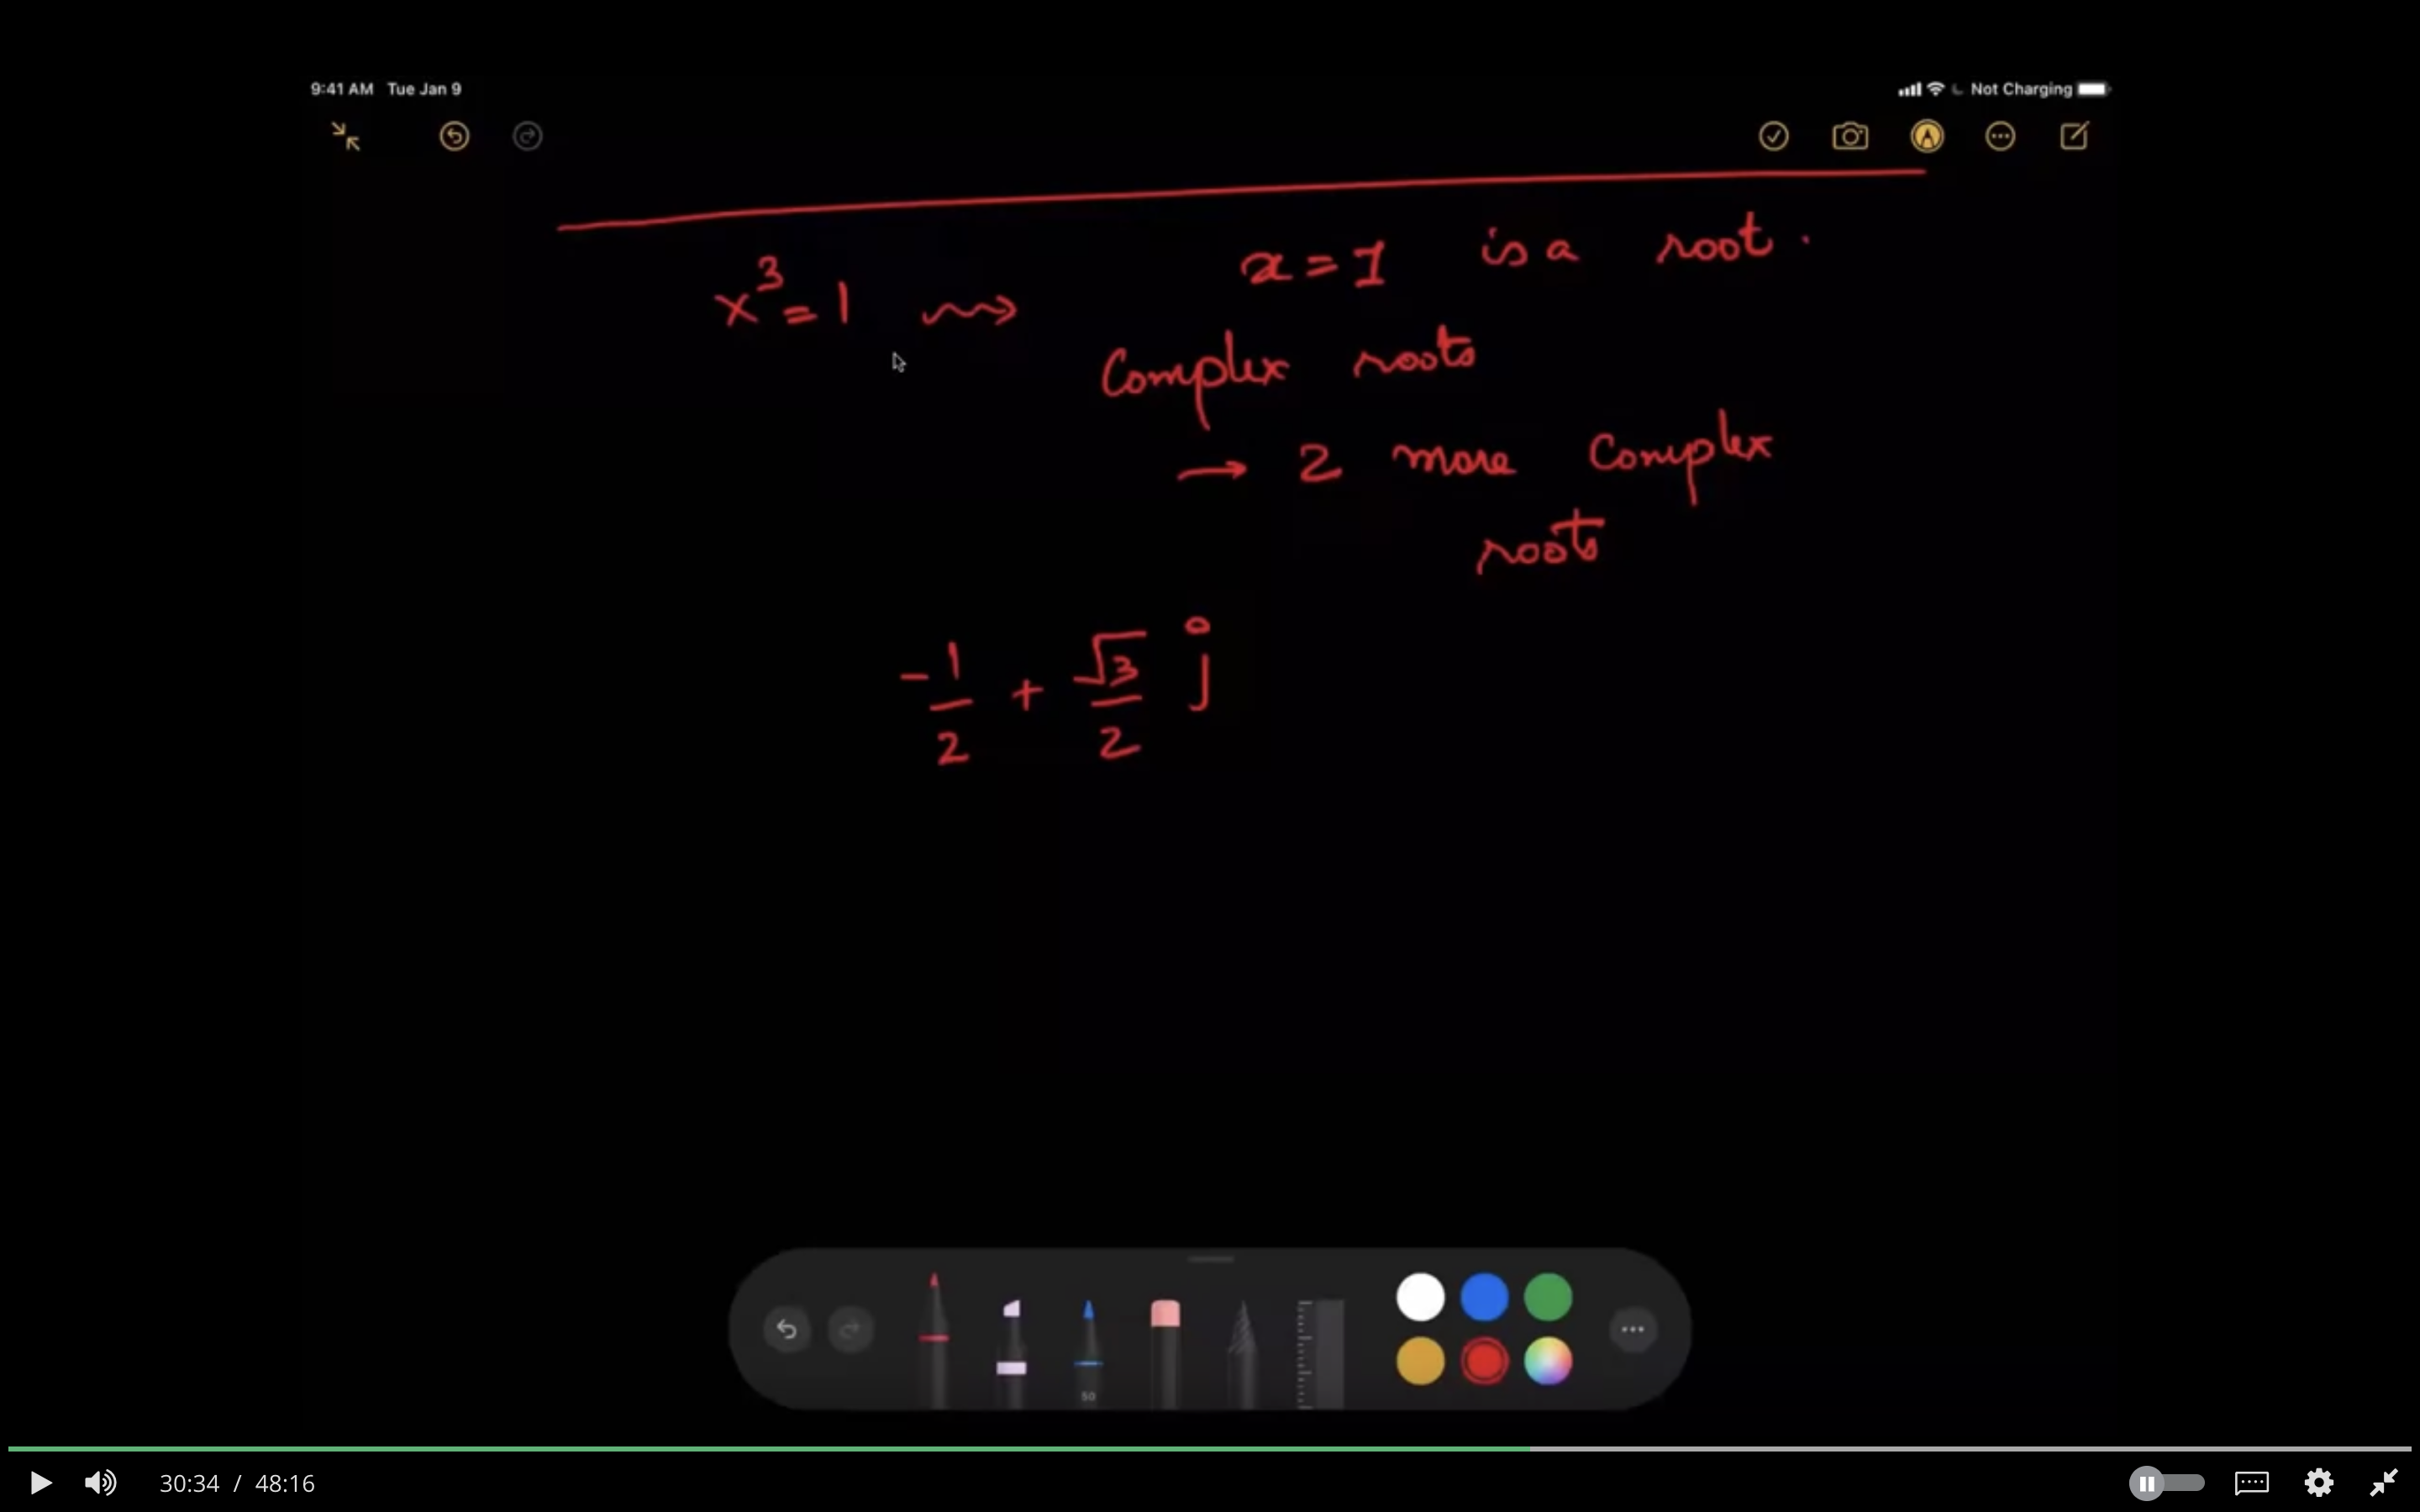 9:41 AM Tue Jan 9
Not Charging
x³ = 1 ⇝ x = 1 is a root.
Complex roots
→ 2 more Complex
roots
-1/2 + √3/2 j
50
30:34 / 48:16